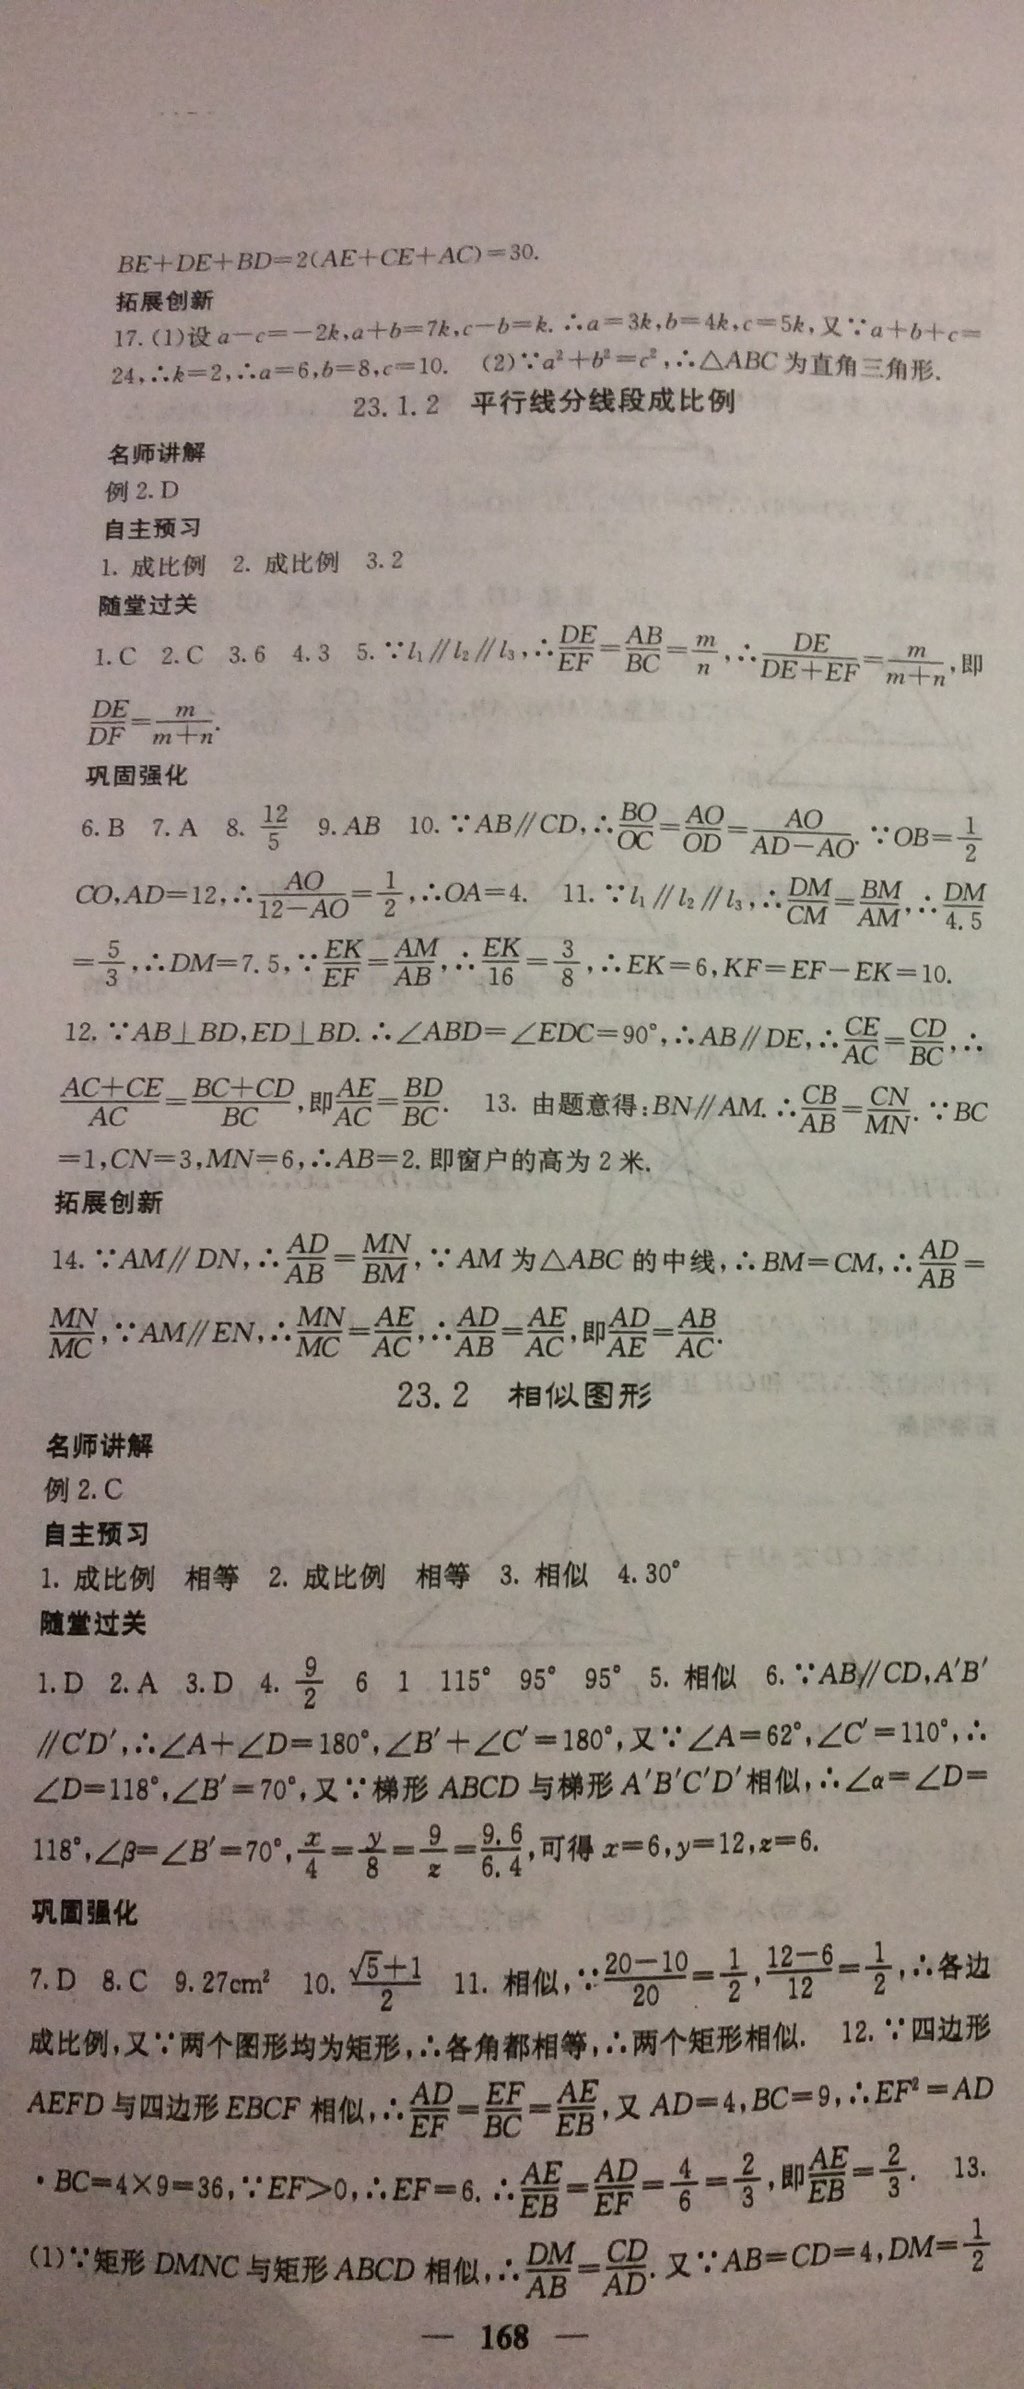 BE+DE+BD=2(AE+CE+AC)=30.
拓展创新
17.(1)设 a-c=-2k,a+b=7k,c-b=k. ∴a=3k,b=4k,c=5k,又∵a+b+c=
24,∴k=2,∴a=6,b=8,c=10. (2)∵a²+b²=c²,∴△ABC 为直角三角形.
23.1.2 平行线分线段成比例
名师讲解
例 2. D
自主预习
1. 成比例 2. 成比例 3. 2
随堂过关
1. C 2. C 3. 6 4. 3 5. ∵l₁∥l₂∥l₃,∴DE/EF=AB/BC=m/n,∴DE/(DE+EF)=m/(m+n),即
DE/DF=m/(m+n).
巩固强化
6. B 7. A 8. 12/5 9. AB 10. ∵AB∥CD,∴BO/OC=AO/OD=AO/(AD-AO). ∵OB=1/2
CO,AD=12,∴AO/(12-AO)=1/2,∴OA=4. 11. ∵l₁∥l₂∥l₃,∴DM/CM=BM/AM,∴DM/4.5
=5/3,∴DM=7.5,∵EK/EF=AM/AB,∴EK/16=3/8,∴EK=6,KF=EF-EK=10.
12. ∵AB⊥BD,ED⊥BD. ∴∠ABD=∠EDC=90°,∴AB∥DE,∴CE/AC=CD/BC,∴
(AC+CE)/AC=(BC+CD)/BC,即AE/AC=BD/BC. 13. 由题意得:BN∥AM. ∴CB/AB=CN/MN. ∵BC
=1,CN=3,MN=6,∴AB=2. 即窗户的高为 2 米.
拓展创新
14. ∵AM∥DN,∴AD/AB=MN/BM,∵AM 为△ABC 的中线,∴BM=CM,∴AD/AB=
MN/MC,∵AM∥EN,∴MN/MC=AE/AC,∴AD/AB=AE/AC,即AD/AE=AB/AC.
23.2 相似图形
名师讲解
例 2. C
自主预习
1. 成比例 相等 2. 成比例 相等 3. 相似 4. 30°
随堂过关
1. D 2. A 3. D 4. 9/2 6 1 115° 95° 95° 5. 相似 6. ∵AB∥CD,A′B′
∥C′D′,∴∠A+∠D=180°,∠B′+∠C′=180°,又∵∠A=62°,∠C′=110°,∴
∠D=118°,∠B′=70°,又∵梯形 ABCD 与梯形 A′B′C′D′相似,∴∠α=∠D=
118°,∠β=∠B′=70°,x/4=y/8=9/z=9.6/6.4,可得 x=6,y=12,z=6.
巩固强化
7. D 8. C 9. 27cm² 10. (√5+1)/2 11. 相似,∵(20-10)/20=1/2,(12-6)/12=1/2,∴各边
成比例,又∵两个图形均为矩形,∴各角都相等,∴两个矩形相似. 12. ∵四边形
AEFD 与四边形 EBCF 相似,∴AD/EF=EF/BC=AE/EB,又 AD=4,BC=9,∴EF²=AD
·BC=4×9=36,∵EF>0,∴EF=6. ∴AE/EB=AD/EF=4/6=2/3,即AE/EB=2/3. 13.
(1)∵矩形 DMNC 与矩形 ABCD 相似,∴DM/AB=CD/AD. 又∵AB=CD=4,DM=1/2
— 168 —